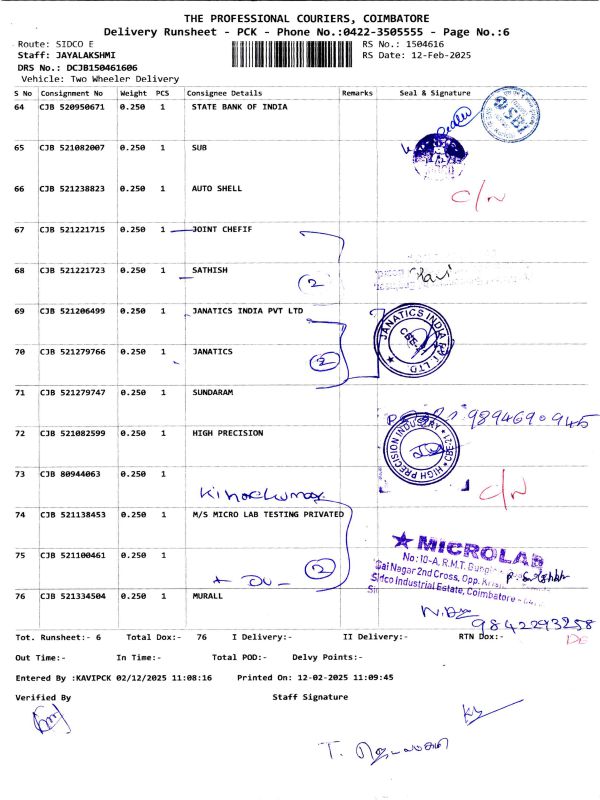 THE PROFESSIONAL COURIERS, COIMBATORE
Delivery Runsheet - PCK - Phone No.:0422-3505555 - Page No.:6
Route: SIDCO E
RS No.: 1504616
Staff: JAYALAKSHMI
RS Date: 12-Feb-2025
DRS No.: DCJB150461606
Vehicle: Two Wheeler Delivery
S No Consignment No Weight PCS Consignee Details Remarks Seal & Signature
64 CJB 520950671 0.250 1 STATE BANK OF INDIA
65 CJB 521082007 0.250 1 SUB
66 CJB 521238823 0.250 1 AUTO SHELL
C/N
67 CJB 521221715 0.250 1 JOINT CHEFIF
68 CJB 521221723 0.250 1 SATHISH
(2) Ravi
69 CJB 521206499 0.250 1 JANATICS INDIA PVT LTD
JANATICS INDIA PVT. LTD
70 CJB 521279766 0.250 1 JANATICS
(2)
71 CJB 521279747 0.250 1 SUNDARAM
9894690945
72 CJB 521082599 0.250 1 HIGH PRECISION
HIGH PRECISION INDUSTRY CBE-21
73 CJB 80944063 0.250 1
C/N
74 CJB 521138453 0.250 1 M/S MICRO LAB TESTING PRIVATED
MICROLAB
75 CJB 521100461 0.250 1
No:10-A, R.M.T.
Nagar 2nd Cross, Opp.
(2)
Sidco Industrial Estate, Coimbatore -
76 CJB 521334504 0.250 1 MURALL
9842293258
Tot. Runsheet:- 6 Total Dox:- 76 I Delivery:- II Delivery:- RTN Dox:-
DE
Out Time:- In Time:- Total POD:- Delvy Points:-
Entered By :KAVIPCK 02/12/2025 11:08:16 Printed On: 12-02-2025 11:09:45
Verified By Staff Signature